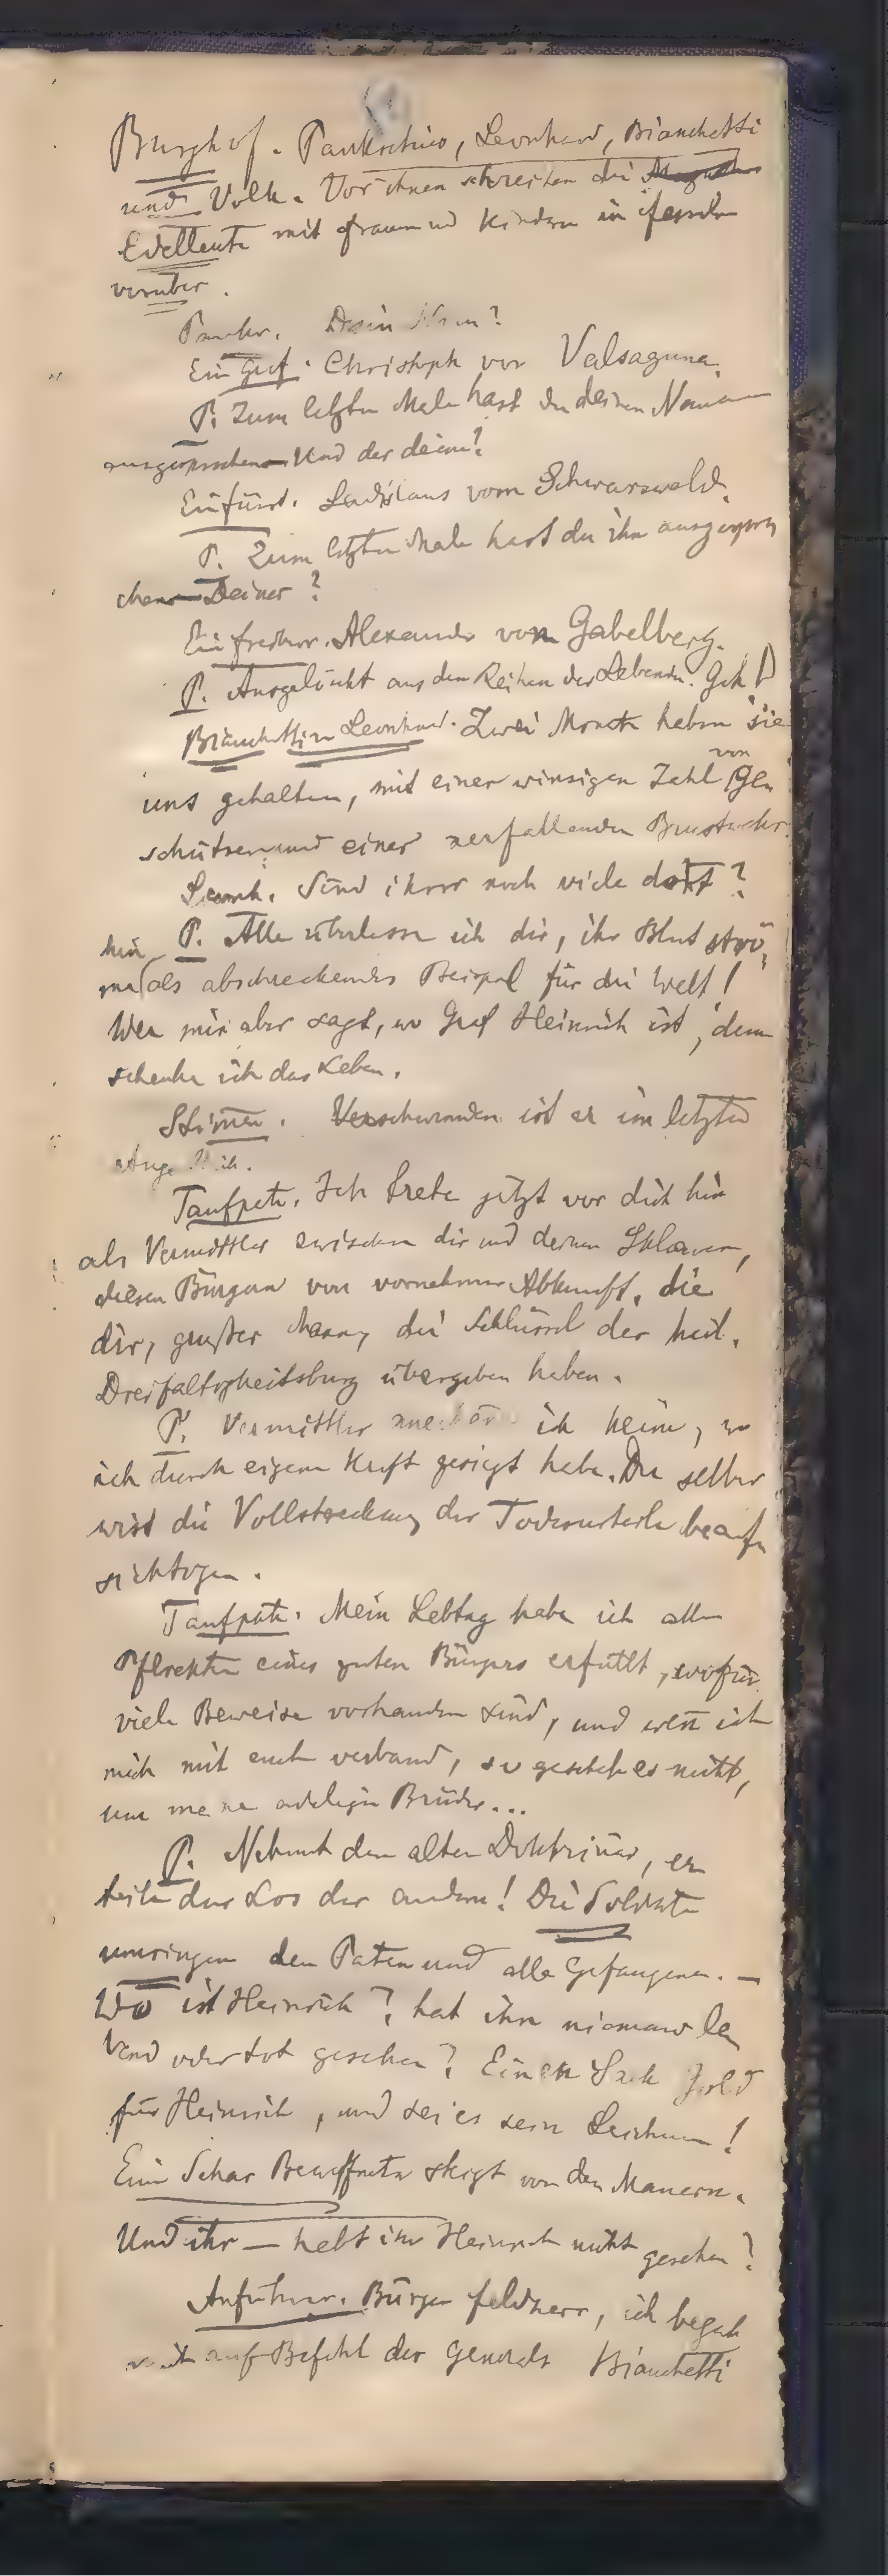 Burghof. Pankratius, Leonhard, Bianchetti
und Volk. Vor ihnen schreiten die
Edelleute mit Frauen und Kindern in Fesseln
vorüber.
Pankr. Dein Nam?
Ein Graf. Christoph von Valsaguna.
P. Zum letzten Male hast du deinen Namen
ausgesprochen. Und der deine?
Ein Fürst. Ladislaus vom Schwarzwald.
P. Zum letzten Male hast du ihn ausgespro
chen. Deiner?
Ein Freiherr. Alexander vom Gabelberg.
P. Ausgelöscht aus den Reihen der Lebenden. Geh!
Bianchetti zu Leonhard. Zwei Monate haben sie
uns gehalten, mit einer winzigen Zahl von Ge
schützen und einer zerfallenden Brustwehr.
Leonh. Sind ihrer noch viele dort?
P. Alle überlasse ich dir, ihr Blut strö
me hin als abschreckendes Beispiel für die Welt!
Wer mir aber sagt, wo Graf Heinrich ist, dem
schenke ich das Leben.
Stimmen. Verschwunden ist er im letzten
Augenblick.
Taufpate. Ich trete jetzt vor dich hin
als Vermittler zwischen dir und deinen Sklaven,
diesen Bürgern von vornehmer Abkunft, die
dir, großer Mann, die Schlüssel der heil.
Dreifaltigkeitsburg übergeben haben.
P. Vermittler ich keine, wo
ich durch eigene Kraft gesiegt habe. Du selber
wirst die Vollstreckung der Todesurteile beauf
sichtigen.
Taufpate. Mein Lebtag habe ich alle
Pflichten eines guten Bürgers erfüllt, wofür
viele Beweise vorhanden sind, und wenn ich
mich mit euch verband, so geschah es nicht,
um meine adeligen Brüder...
P. Nehmt den alten Doktrinär, er
teile das Los der andern! Die Soldaten
umringen den Paten und alle Gefangenen. —
Wo ist Heinrich?, hat ihn niemand le
bend oder tot gesehen? Einen Sack Gold
für Heinrich, und sei es sein Leichnam!
Eine Schar Bewaffneter steigt von den Mauern.
Und ihr — habt ihr Heinrich nicht gesehen?
Anführer. Bürger Feldherr, ich begab
mich auf Befehl des Generals Bianchetti